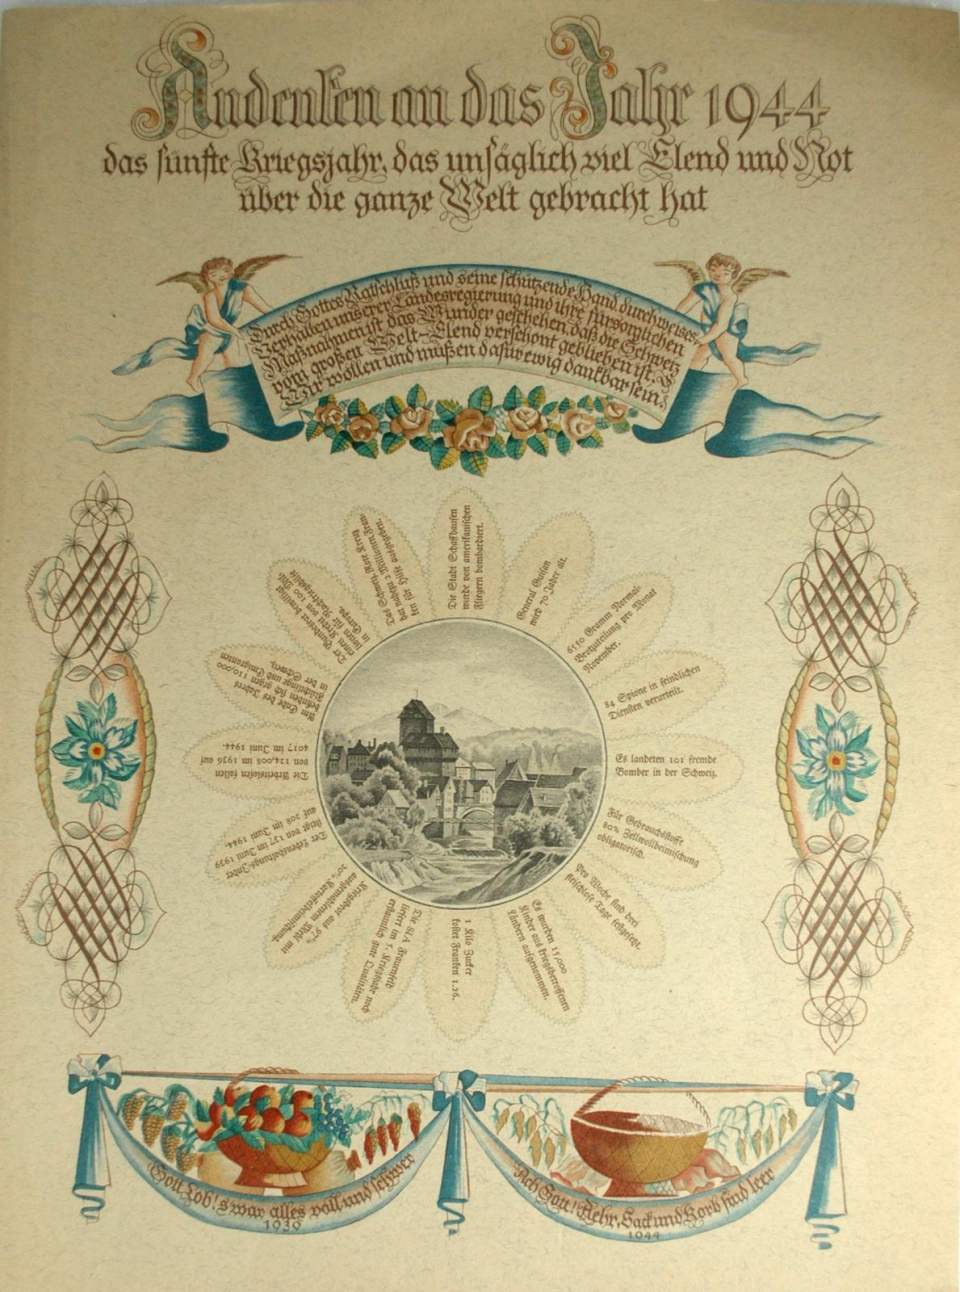 Andenken an das Jahr 1944
das fünfte Kriegsjahr, das unsäglich viel Elend und Not
über die ganze Welt gebracht hat
Durch Gottes Ratschluß und seine schützende Hand durch weises
Verhalten unserer Landesregierung und ihre fürsorglichen
Maßnahmen ist das Wunder geschehen, daß die Schweiz
vom großen Welt-Elend verschont geblieben ist.
Wir wollen und müßen dafür ewig dankbar sein.
Die Stadt Schaffhausen
wurde von amerikanischen
Fliegern bombardiert.
General Guisan
wird 70 Jahre alt.
6550 Gramm Normal-
Brotzuteilung pro Monat
November.
84 Spione in feindlichen
Diensten verurteilt.
Es landeten 101 fremde
Bomber in der Schweiz.
Für Gebrauchsstoffe
80% Zellwollbeimischung
obligatorisch.
Pro Woche sind drei
fleischlose Tage festgelegt.
Es wurden 15,000
Kinder aus kriegsbetroffenen
Ländern aufgenommen.
1 Kilo Zucker
kostet Franken 1.26.
Die SIA Frauenfeld
liefert im 5. Kriegsjahr noch
erstaunlich gute Qualitäten.
Kriegsbrot aus
ausgemahlenem Mehl mit
20% Kartoffelbeimischung.
Der Lebenshaltungs-Index
steigt von 137 im Juni 1939
auf 208 im Juni 1944.
Die Arbeitslosen fallen
von 124,008 im 1936 auf
4017 im Juni 1944.
Am Ende des Jahres
befinden sich gegen 110,000
Flüchtlinge und Emigranten
in der Schweiz.
Der Bundesrat bewilligt
einen Kredit von 100 Mill.
für
in Europa.
Das Schweiz. Rote Kreuz
hat nahezu 2 Millionen Fran-
ken für Hilfe ausgegeben.
Gott Lob! s'war alles voll und schwer
1939
Ach Gott! Mehr, Sack und Korb sind leer
1944